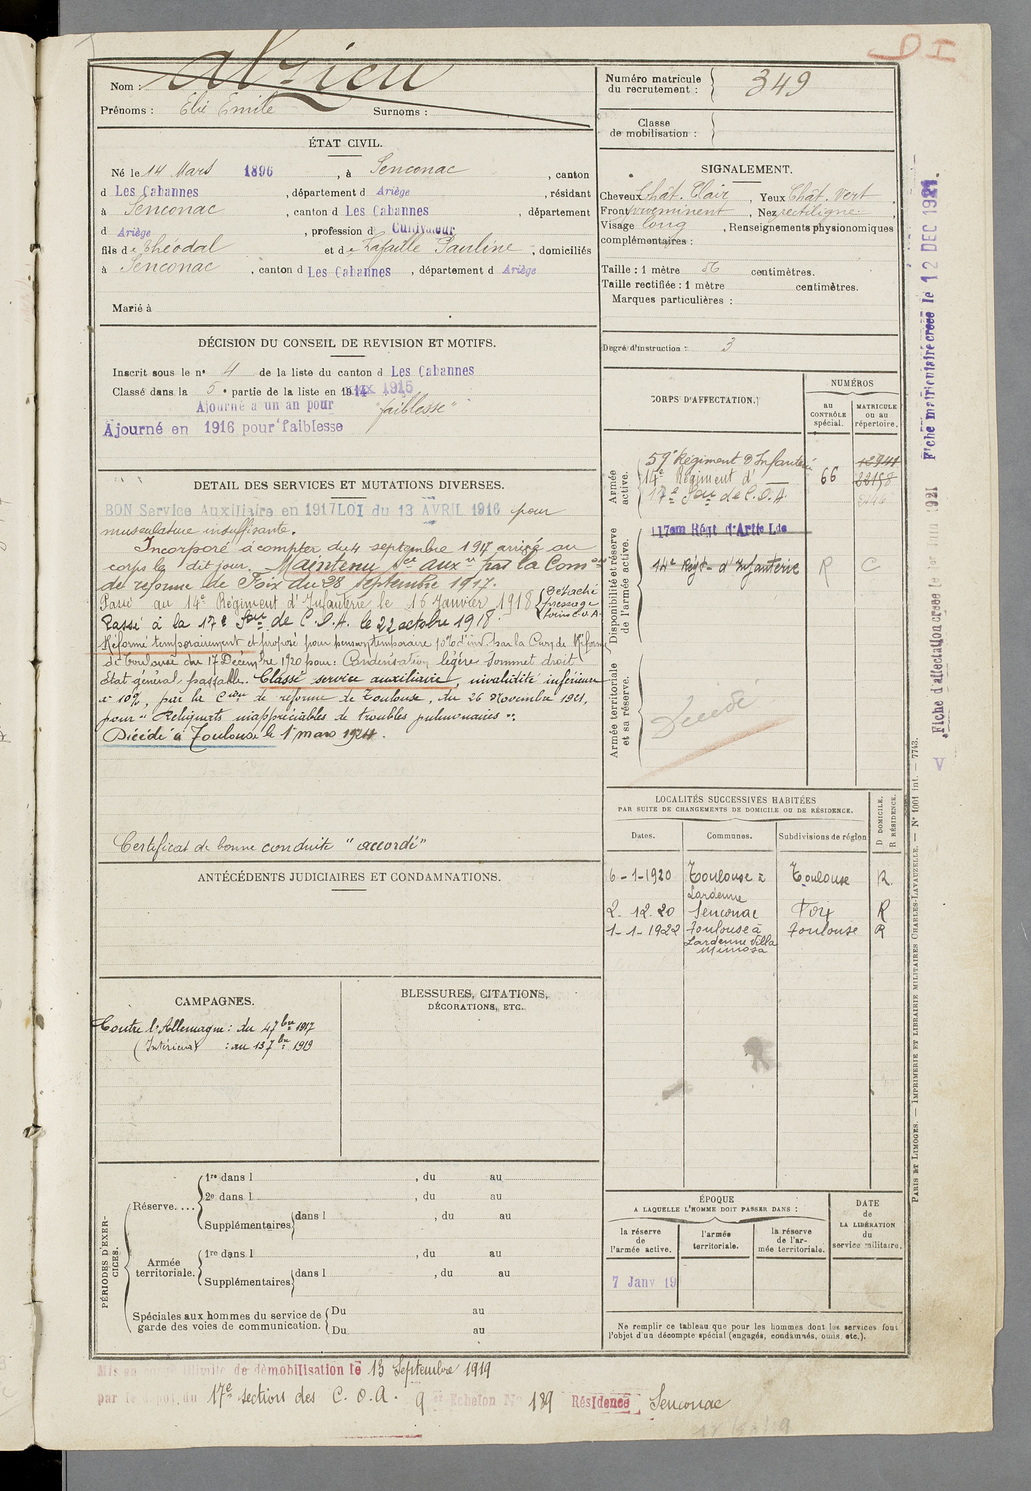 Nom : Alzieu
Prénoms : Elie Emile Surnoms :
Numéro matricule
du recrutement : 349
Classe
de mobilisation :
ÉTAT CIVIL.
Né le 14 Mars 1896, à Senconac, canton
d Les Cabannes, département d Ariège, résidant
à Senconac, canton d Les Cabannes, département
d Ariège, profession d Cultivateur
fils de Théodal et de Lafaille Pauline, domiciliés
à Senconac, canton d Les Cabannes, département d Ariège
Marié à
SIGNALEMENT.
Cheveux Chât. Clair, Yeux Chât. Vert
Front proeminent, Nez rectiligne,
Visage long, Renseignements physionomiques
complémentaires :
Taille : 1 mètre 56 centimètres.
Taille rectifiée : 1 mètre centimètres.
Marques particulières :
Degré d'instruction : 3
DÉCISION DU CONSEIL DE REVISION ET MOTIFS.
Inscrit sous le n° 4 de la liste du canton d Les Cabannes
Classé dans la 5e partie de la liste en 1915
Ajourné à un an pour "faiblesse"
Ajourné en 1916 pour faiblesse
DÉTAIL DES SERVICES ET MUTATIONS DIVERSES.
BON Service Auxiliaire en 1917 LOI du 13 AVRIL 1916 pour
musculature insuffisante.
Incorporé à compter du 4 septembre 1917 arrivé au
corps le dit jour. Maintenu Sce auxre par la Comon
de reforme de Foix du 28 Septembre 1917.
Passé au 14e Régiment d'Infanterie le 16 Janvier 1918 (Détaché
pressage
foins C.O.A.
Passé à la 17e Son de C.O.A. le 22 octobre 1918.
Réformé temporairement et proposé pour pension temporaire 10% d'inv. par la Con de Réforme
de Toulouse du 17 Décembre 1920 pour : Condensation légère sommet droit.
Etat général passable. Classé service auxiliaire, invalidité inférieure
à 10%, par la Cion de réforme de Toulouse, du 26 Novembre 1921,
pour "Reliquats inappréciables de troubles pulmonaires".
Décédé à Toulouse le 1er mars 1924.
Certificat de bonne conduite "accordé"
CORPS D'AFFECTATION.
NUMÉROS
au
CONTRÔLE
spécial.
MATRICULE
ou au
répertoire.
Armée
active.
59e Régiment d'Infanterie
14e Régiment d' —
17e Son de C.O.A.
66
Disponibilité et réserve
de l'armée active.
117em Régt d'Artie Lde
14e Régt d'Infanterie R C
Armée territoriale
et sa réserve.
Décédé
ANTÉCÉDENTS JUDICIAIRES ET CONDAMNATIONS.
LOCALITÉS SUCCESSIVES HABITÉES
PAR SUITE DE CHANGEMENTS DE DOMICILE OU DE RÉSIDENCE.
Dates. Communes. Subdivisions de région D DOMICILE. R RÉSIDENCE.
6-1-1920 Toulouse à Lardenne Toulouse R.
2.12.20 Senconac Foix R
1-1-1922 Toulouse à Lardenne Villa Mimosa Toulouse R
CAMPAGNES.
Contre l'Allemagne : du 4 7bre 1917
(Intérieur) : au 13 7bre 1919
BLESSURES, CITATIONS,
DÉCORATIONS, ETC.
PÉRIODES D'EXERCICES.
Réserve....
1re dans l , du au
2e dans l , du au
Supplémentaires dans l , du au
Armée
territoriale.
1re dans l , du au
Supplémentaires dans l , du au
Spéciales aux hommes du service de
garde des voies de communication.
Du au
Du au
ÉPOQUE
A LAQUELLE L'HOMME DOIT PASSER DANS :
la réserve
de
l'armée active.
l'armée
territoriale.
la réserve
de l'armée territoriale.
DATE
de
LA LIBÉRATION
du
service militaire.
7 Janv 19
Ne remplir ce tableau que pour les hommes dont les services font
l'objet d'un décompte spécial (engagés, condamnés, omis, etc.).
Mis en illimité de démobilisation le 13 Septembre 1919
par le dépôt du 17e section des C.O.A. 9 er Echelon No 139 Résidence Senconac
Fiche matriculaire créée le 12 DEC 1921.
Fiche d'affectation créée le 1er Juin 1921
V
PARIS ET LIMOGES. — IMPRIMERIE ET LIBRAIRIE MILITAIRES CHARLES-LAVAUZELLE. — N° 1001 int. — 7743.